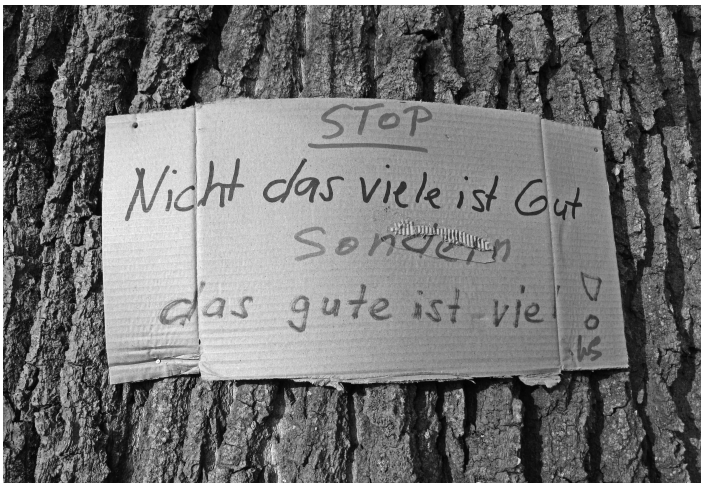 STOP
Nicht das viele ist Gut
Sondern
das gute ist viel!
WS